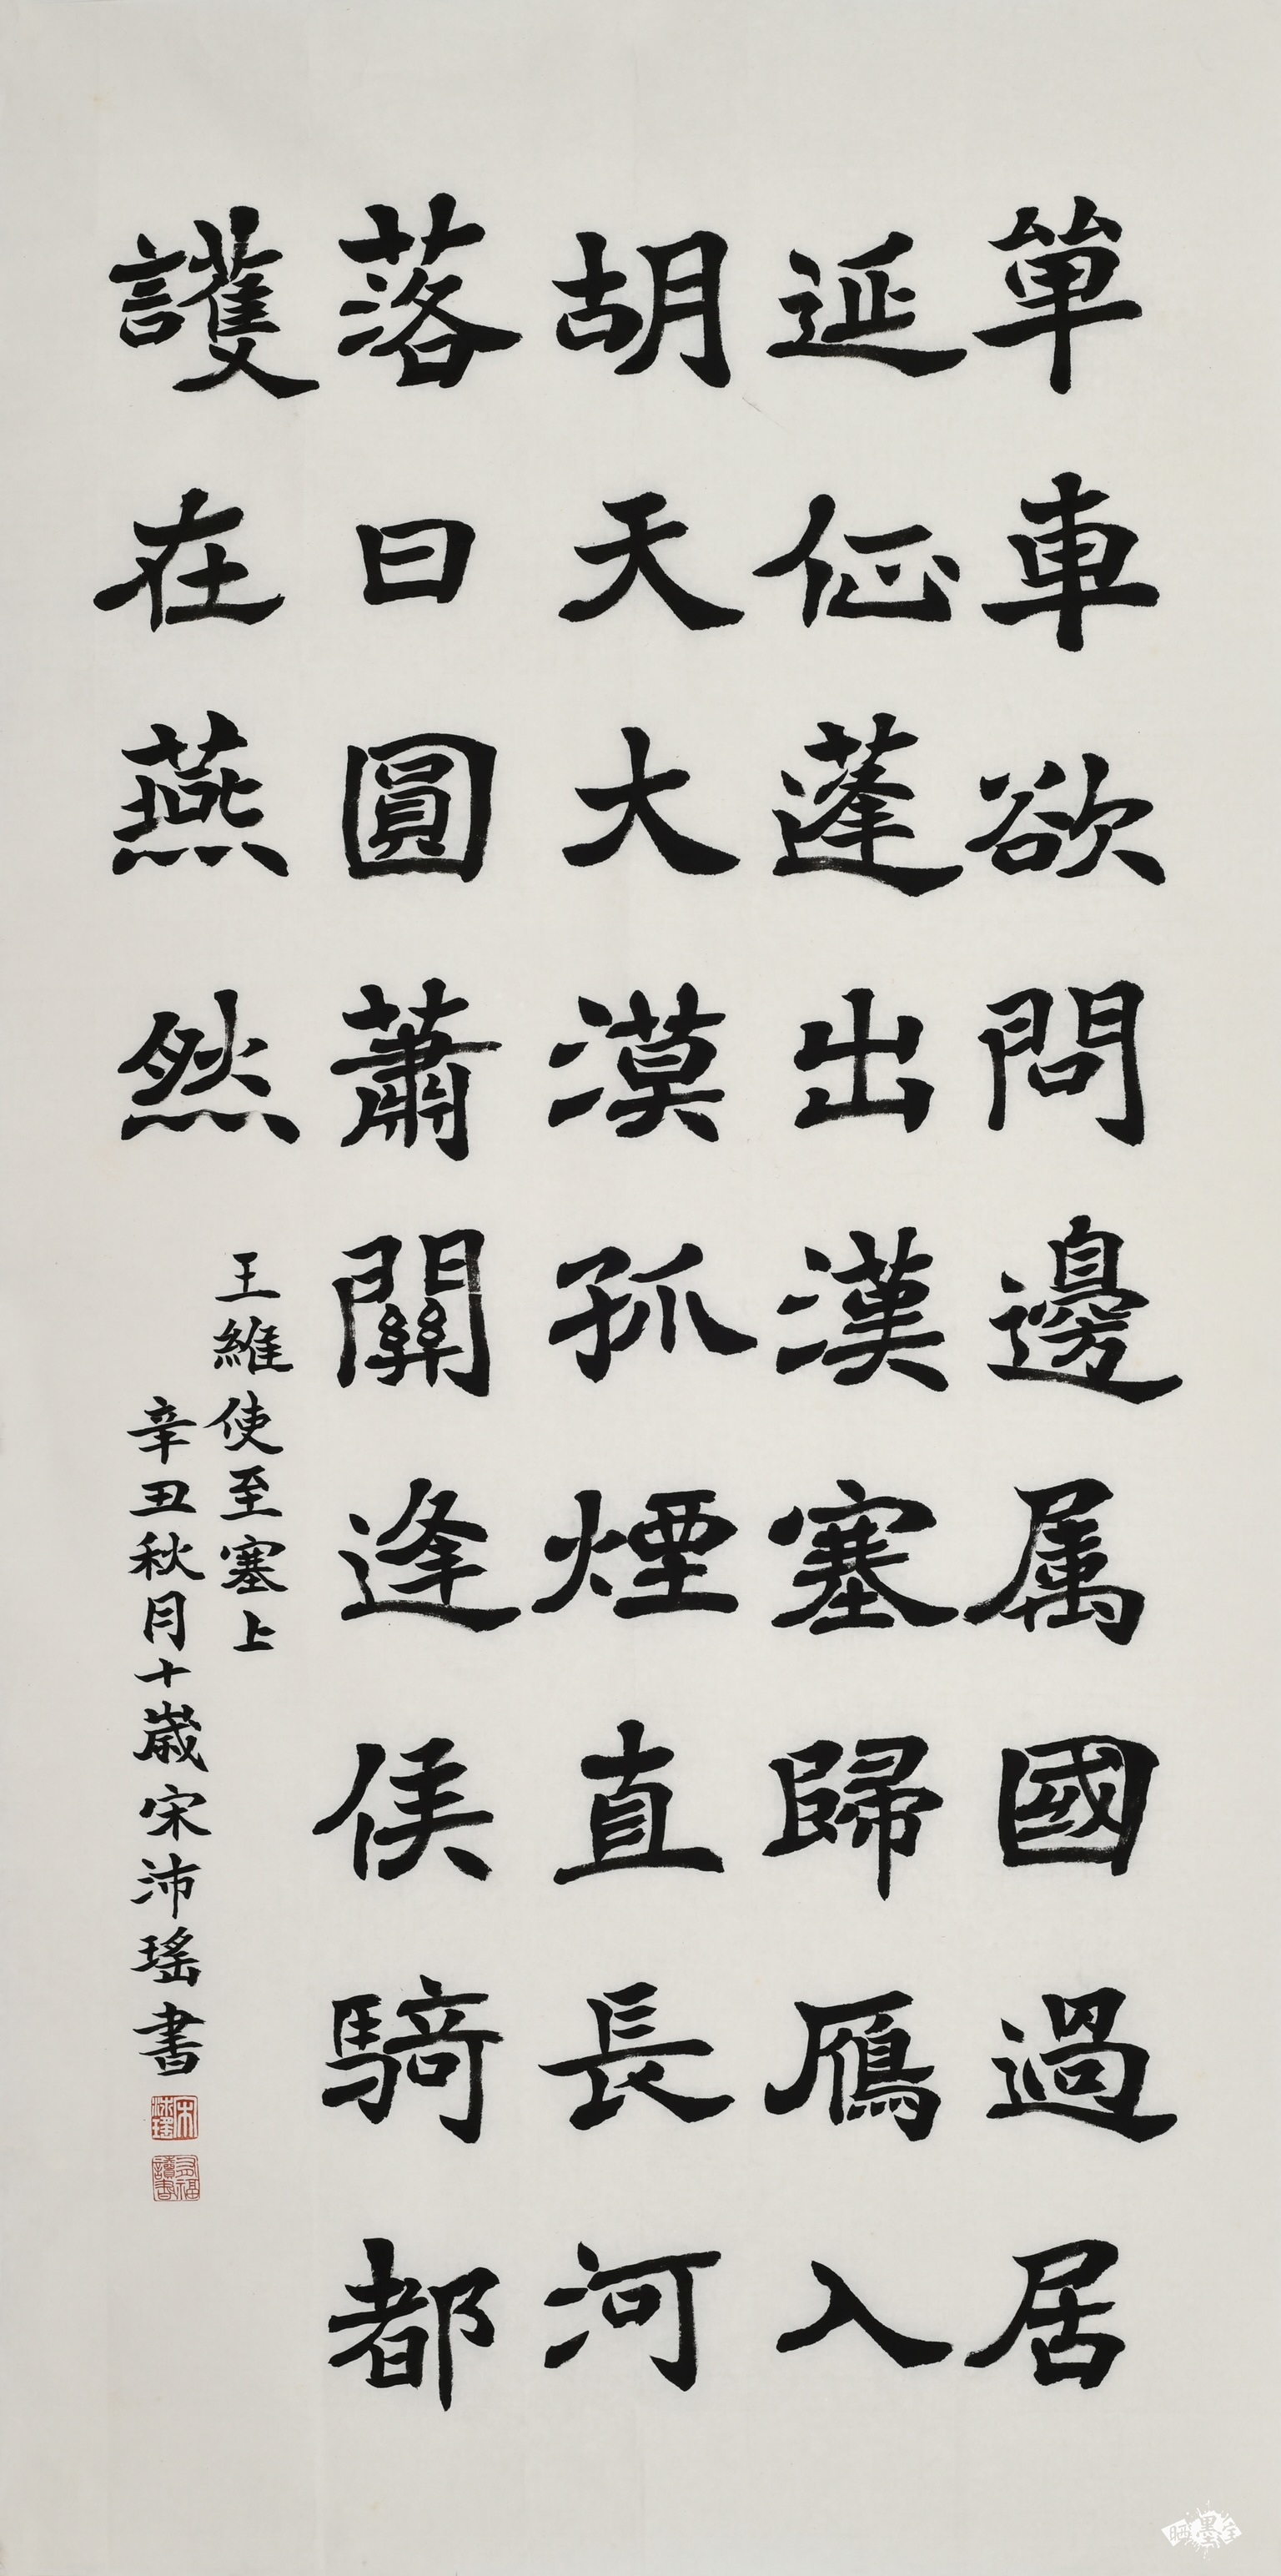 單車欲問邊属國過居
延征蓬出漢塞歸鴈入
胡天大漠孤煙直長河
落日圓蕭關逢侯騎都
護在燕然
王維使至塞上
辛丑秋月十歲宋沛瑤書
宋沛瑤
讀書
晒墨宝